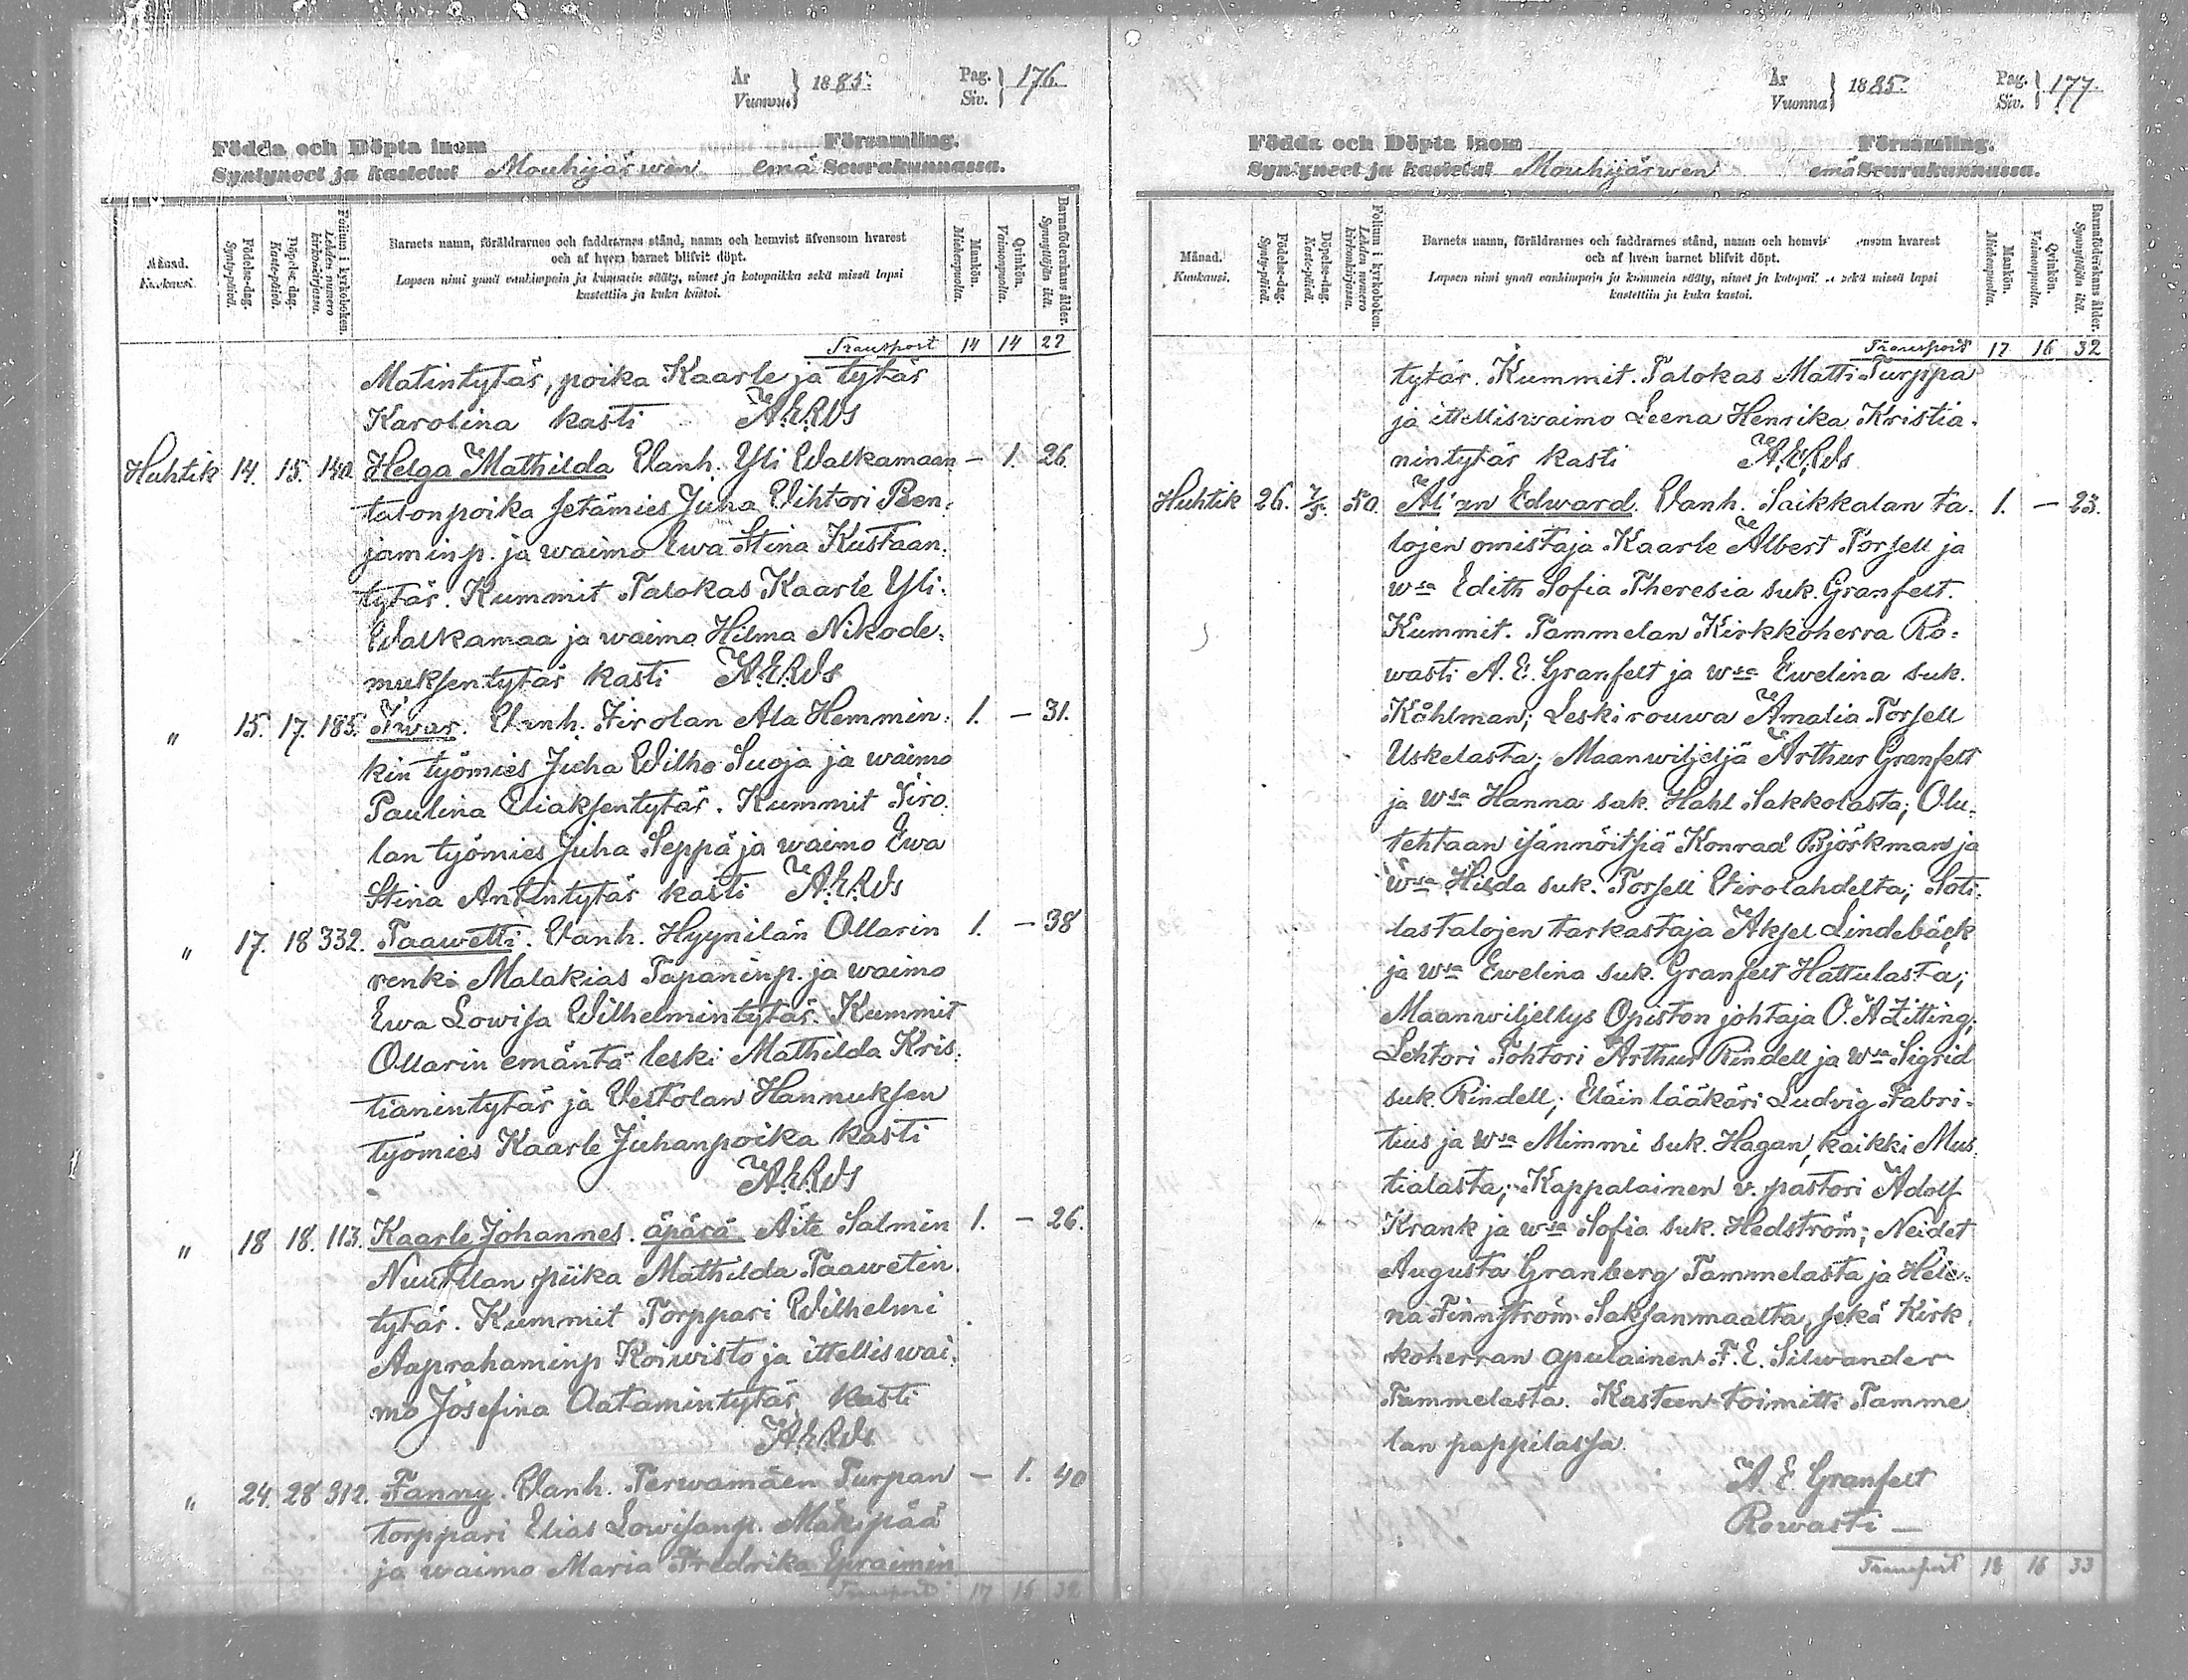 År
Vuonna } 1885.
Pag.
Siv. } 176.
Födda och Döpta inom Församling.
Syntyneet ja kastetut Mouhijärwen emä Seurakunnassa.
Månad.
Kuukausi.
Födelse-dag.
Synty-päivä.
Döpelse-dag.
Kaste-päivä.
Folium i kyrkoboken.
Lehden numero kirkonkirjassa.
Barnets namn, föräldrarnes och faddrarnes stånd, namn och hemvist äfvensom hvarest
och af hvem barnet blifvit döpt.
Lapsen nimi ynnä vanhimpain ja kummein sääty, nimet ja kotopaikka sekä missä lapsi
kastettiin ja kuka kastoi.
Mankön.
Miehenpuolta.
Qvinkön.
Vaimonpuolta.
Barnaföderskans ålder.
Synnyttäjän ikä.
Transport 14 14 27
Matintytär, poika Kaarle ja tytär
Karolina kasti
Huhtik 14. 15. 140. Helga Mathilda Vanh. Yli Walkamaan — 1. 26.
talonpoika setämies Juha Vihtori Ben-
jaminp. ja waimo Ewa Stina Kustaan-
tytär. Kummit Talokas Kaarle Yli-
Walkamaa ja waimo Hilma Nikode-
muksentytär kasti
" 15. 17. 185. Iwar. Vanh. Tirolan Ala Hemmin- 1. — 31.
kin työmies Juha Wilho Suoja ja waimo
Paulina Eliaksentytär. Kummit Tiro-
lan työmies Juha Seppä ja waimo Ewa
Stina Antintytär kasti
" 17. 18 332. Taawetti. Vanh. Hyynilän Ollarin 1. — 38
renki Malakias Tapaninp. ja waimo
Ewa Lowisa Wilhelmintytär. Kummit
Ollarin emäntä leski Mathilda Kris-
tianintytär ja Vestolan Hannuksen
työmies Kaarle Juhanpoika kasti
" 18 18. 113. Kaarle Johannes. äpärä Äite Salmin 1. — 26.
Nuutilan piika Mathilda Taawetin-
tytär. Kummit Torppari Wilhelmi
Aaprahaminp Koiwisto ja ittelliswai-
mo Josefina Aatamintytär kasti
" 24. 28 312. Fanny. Vanh. Terwamäen Turpan — 1. 40
torppari Elias Lowisanp. Mäkipää
ja waimo Maria Fredrika Epraimin
Transport 17 16 32
År
Vuonna } 1885.
Pag.
Siv. } 177.
Födda och Döpta inom Församling.
Syntyneet ja kastetut Mouhijärwen emä Seurakunnassa.
Månad.
Kuukausi.
Födelse-dag.
Synty-päivä.
Döpelse-dag.
Kaste-päivä.
Folium i kyrkoboken.
Lehden numero kirkonkirjassa.
Barnets namn, föräldrarnes och faddrarnes stånd, namn och hemvis ensom hvarest
och af hvem barnet blifvit döpt.
Lapsen nimi ynnä vanhimpain ja kummein sääty, nimet ja kotopai sekä missä lapsi
kastettiin ja kuka kastoi.
Mankön.
Miehenpuolta.
Qvinkön.
Vaimonpuolta.
Barnaföderskans ålder.
Synnyttäjän ikä.
Transport 17 16 32
tytär. Kummit. Talokas Matti Turppa
ja ittelliswaimo Leena Henrika Kristia-
nintytär kasti
Huhtik 26. 7/5. 50. Edward. Vanh. Saikkalan ta- 1. — 23.
lojen omistaja Kaarle Albert Forsell ja
wsa Edith Sofia Theresia suk. Granfelt.
Kummit. Tammelan Kirkkoherra Ro-
wasti A. E. Granfelt ja wsa Ewelina suk.
Kåhlman; Leskirouwa Amalia Forsell
Uskelasta; Maanwiljeljä Arthur Granfelt
ja wsa Hanna suk. Hahl Sakkolasta; Olu-
tehtaan isännöitsiä Konrad Björkman ja
wsa Hilda suk. Forsell Virolahdelta; Soti-
lastalojen tarkastaja Aksel Lindebäck
ja wsa Ewelina suk. Granfelt Hattulasta;
Maanwiljellys Opiston johtaja O. A Zitting;
Lehtori Tohtori Arthur Rindell ja wsa Sigrid
suk. Rindell; Eläin lääkäri Ludvig Fabri-
tius ja wsa Mimmi suk. Hagan, kaikki Mus-
tialasta; Kappalainen v. pastori Adolf
Krank ja wsa Sofia suk. Hedström; Neidet
Augusta Granberg Tammelasta ja Hele-
na Finnström Saksanmaalta, sekä Kirk-
koherran apulainen F. E. Silwander
Tammelasta. Kasteen toimitti Tamme-
lan pappilassa
A. E. Granfelt
Rowasti —
Transport 18 16 33